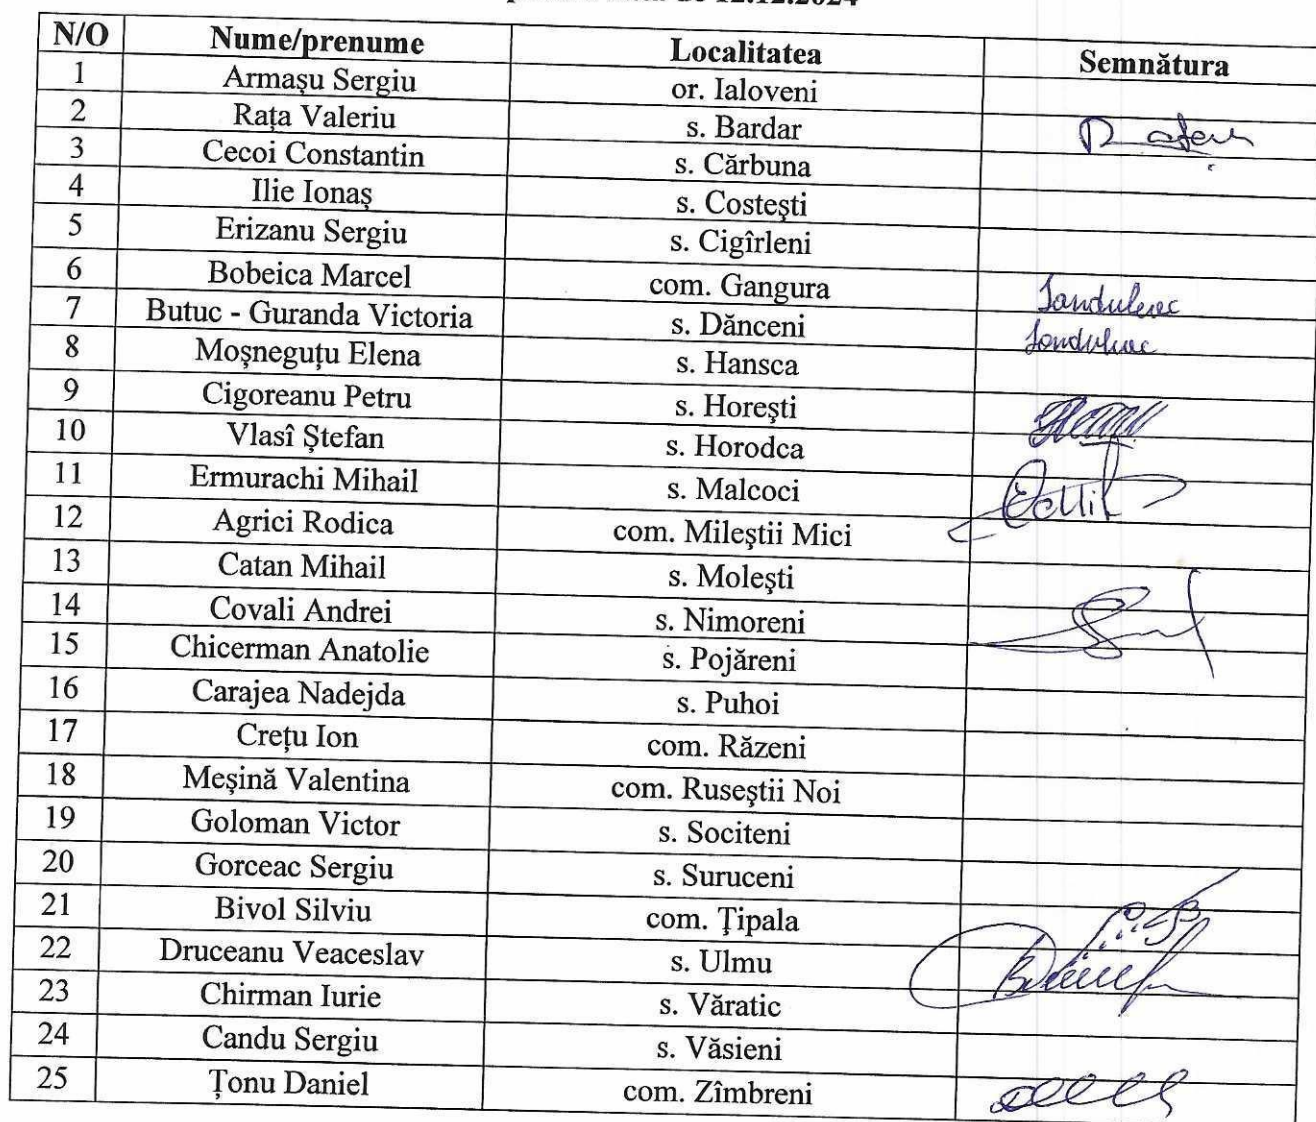 de 12.12.2024
N/O Nume/prenume Localitatea Semnătura
1 Armașu Sergiu or. Ialoveni
2 Rața Valeriu s. Bardar
3 Cecoi Constantin s. Cărbuna
4 Ilie Ionaș s. Costeşti
5 Erizanu Sergiu s. Cigîrleni
6 Bobeica Marcel com. Gangura
7 Butuc - Guranda Victoria s. Dănceni
8 Moșneguțu Elena s. Hansca
9 Cigoreanu Petru s. Horeşti
10 Vlasî Ștefan s. Horodca
11 Ermurachi Mihail s. Malcoci
12 Agrici Rodica com. Mileştii Mici
13 Catan Mihail s. Moleşti
14 Covali Andrei s. Nimoreni
15 Chicerman Anatolie s. Pojăreni
16 Carajea Nadejda s. Puhoi
17 Crețu Ion com. Răzeni
18 Meșină Valentina com. Ruseştii Noi
19 Goloman Victor s. Sociteni
20 Gorceac Sergiu s. Suruceni
21 Bivol Silviu com. Ţipala
22 Druceanu Veaceslav s. Ulmu
23 Chirman Iurie s. Văratic
24 Candu Sergiu s. Văsieni
25 Țonu Daniel com. Zîmbreni